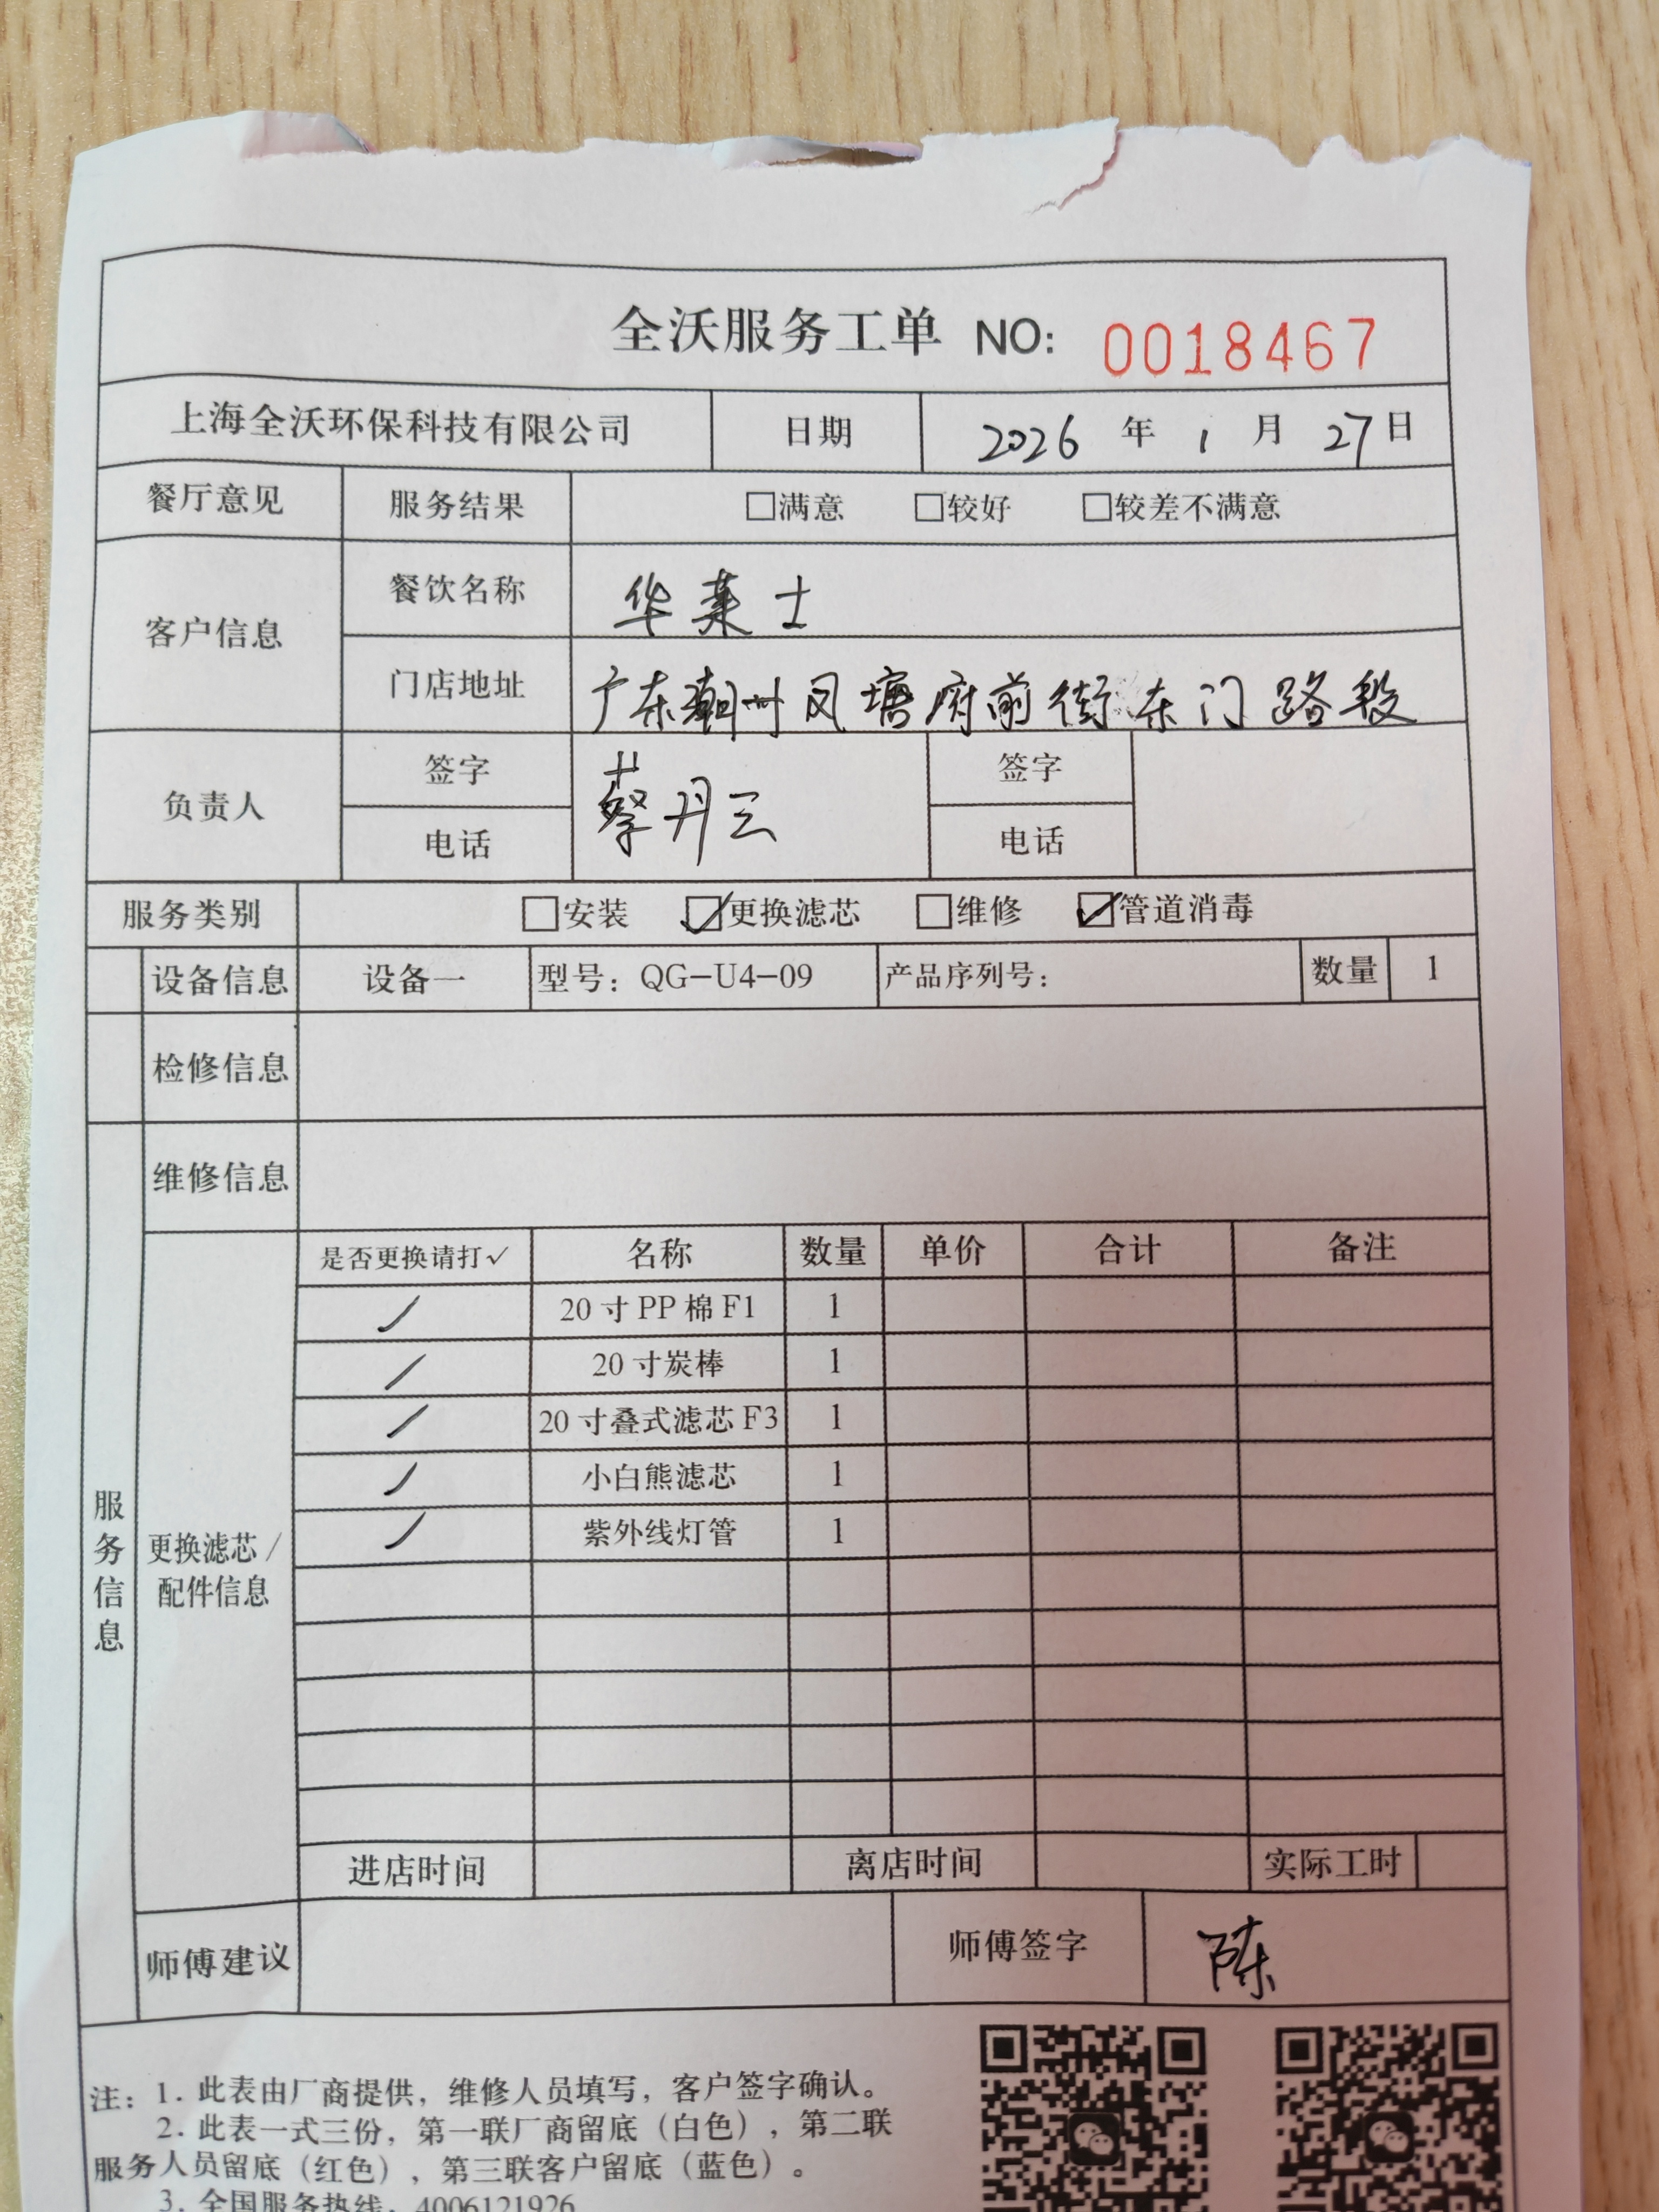 全沃服务工单 NO: 0018467
上海全沃环保科技有限公司 日期 2026 年 1 月 27 日
餐厅意见 服务结果 □满意 □较好 □较差不满意
客户信息 餐饮名称 华莱士
门店地址 广东潮州凤塘府前街东门路段
负责人 签字 电话 蔡丹云 签字 电话
服务类别 □安装 ☑更换滤芯 □维修 ☑管道消毒
设备信息 设备一 型号：QG-U4-09 产品序列号： 数量 1
检修信息
服务信息
维修信息
更换滤芯/
配件信息
是否更换请打√ 名称 数量 单价 合计 备注
✓ 20寸PP棉F1 1
✓ 20寸炭棒 1
✓ 20寸叠式滤芯F3 1
✓ 小白熊滤芯 1
✓ 紫外线灯管 1
进店时间 离店时间 实际工时
师傅建议 师傅签字 陈
注：1. 此表由厂商提供，维修人员填写，客户签字确认。
2. 此表一式三份，第一联厂商留底（白色），第二联
服务人员留底（红色），第三联客户留底（蓝色）。
3. 全国服务热线：4006121926